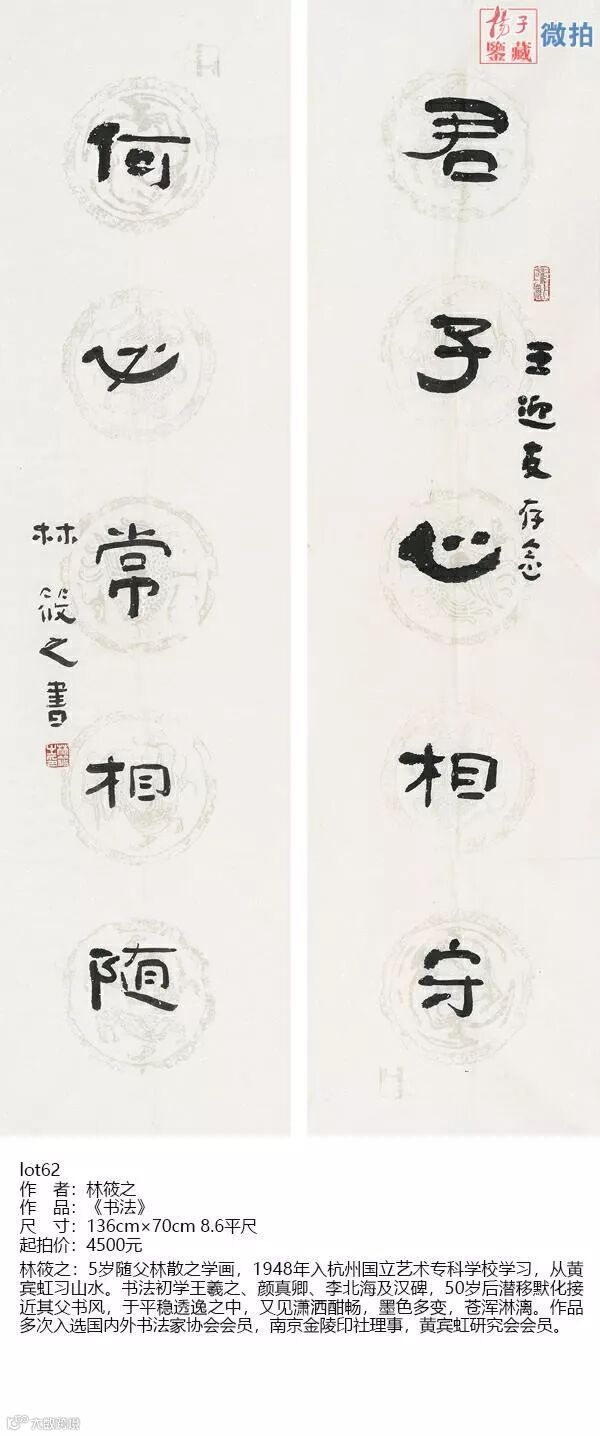 子 楊
藏 鑒
微拍
君子心相守
王迎友存念
何必常相随
林筱之書
lot62
作 者：林筱之
作 品：《书法》
尺 寸：136cm×70cm 8.6平尺
起拍价：4500元
林筱之：5岁随父林散之学画，1948年入杭州国立艺术专科学校学习，从黄
宾虹习山水。书法初学王羲之、颜真卿、李北海及汉碑，50岁后潜移默化接
近其父书风，于平稳透逸之中，又见潇洒酣畅，墨色多变，苍浑淋漓。作品
多次入选国内外书法家协会会员，南京金陵印社理事，黄宾虹研究会会员。
大数跨境